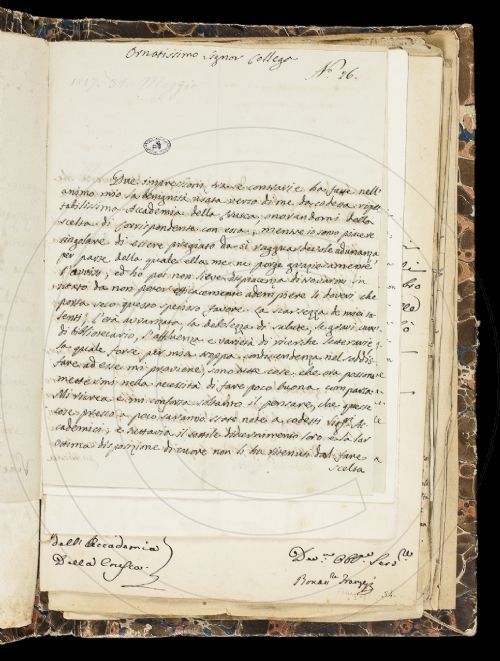 Ornatissimo Signor Collega
Nº 26.
1817. 31. Maggio
Due impressioni tra se contrarie ha fatte nell'
animo mio la benignità usata verso di me da codesta rispet
tabilissima Accademia della Crusca, onorandomi della
scelta di corrispondente con essa, mentre io sono piacere
singolare di essere pregiato da sì ragguardevole adunanza
per parte della quale ella me ne porge graziosamente
l'avviso, ed ho poi non lieve dispiacenza di trovarmi in
istato da non poter efficacemente adempiere il dovere che
porta seco questo spezioso favore. La scarsezza de' miei ta
lenti, l'età avanzata, la debolezza di salute, le gravi cure
di bibliotecario, l'affluenza e varietà di ricerche letterarie
la quale forse per mia troppa condiscendenza nel soddis
fare ad esse mi proviene, sono tutte cose, che ora possono
mettermi nella necessità di fare poco buona comparsa
Mi ricrea e mi conforta soltanto il pensare, che queste
cose presso a poco saranno state note a codesti Sigri Ac
cademici; e tuttavia il sottile discernimento loro, e la lor
ottima disposizione di cuore non li ha ritenuti dal fare
scelta
Dell'Accademia
Della Crusca.
Devmo Obblmo Servre
34.